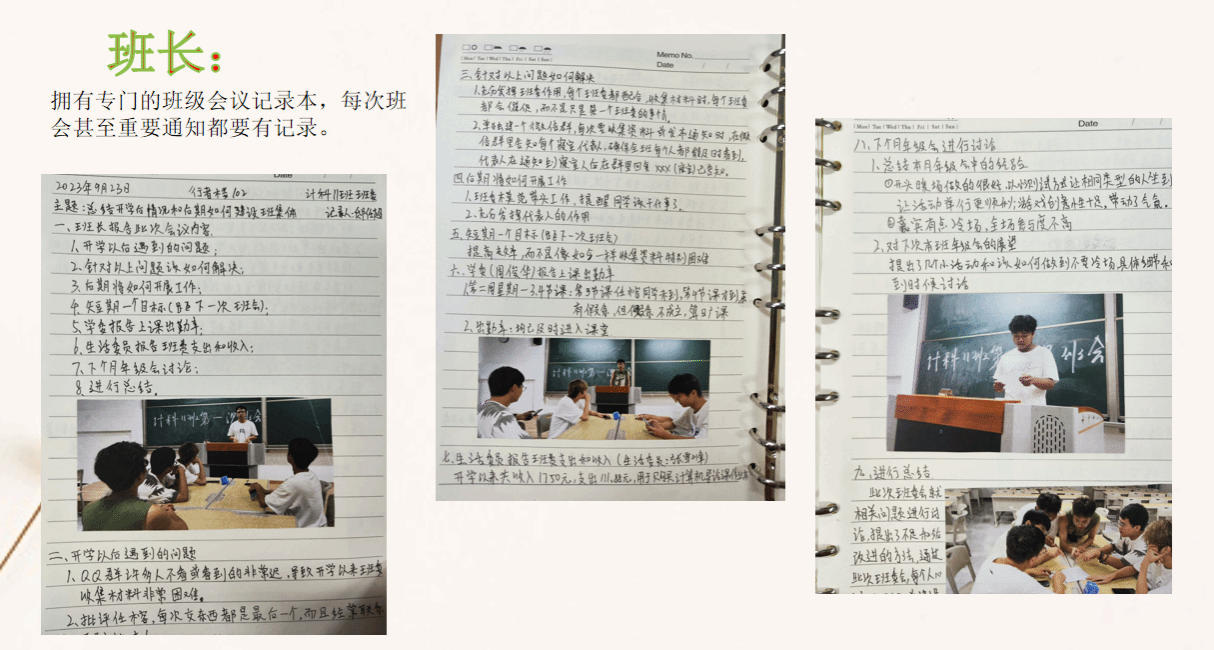 班长：
拥有专门的班级会议记录本，每次班
会甚至重要通知都要有记录。
2023年9月23日 行者楼102 计科11班班委
主题：总结开学后情况和后期如何建设班集体
记录人：
一、班长报告此次会议内容
1.开学以后遇到的问题；
2.针对以上问题该如何解决；
3.后期将如何开展工作；
4.矢豆期一个目标（当至下一次班会）；
5.学委报告上课出勤率；
6.生活委员报告班费支出和收入；
7.下个月年级会讨论；
8.进行总结。
计科11班第一次 会
二、开学以后遇到的问题
1.QQ群许多人不看或看到的非常迟，导致开学以来班委
收集材料非常困难。
2.批评任榕，每次交东西都是最后一个，而且经常联系
Memo No.
Mon Tue Wed Thu Fri Sat Sun
Date
三、针对以上问题如何解决
1.充分发挥班委作用，每个班委都配合，收集材料时，每个班委
都会催促，而不是只是某一个班委的事情。
2.单独建一个微信群，每次要收集资料或发布通知时，在微
信群里告知每个寝室代表人，确保全班每个人都能及时看到。
代表人在通知到寝室人后在群里回复XXX（寝室）已告知。
四、后期将如何开展工作
1.班委模范带头工作，提醒同学该干什事了。
2.充分发挥代表人的作用
五、短期一个目标（当至下一次班会）
提高效率，而不是像如今一样收集资料特别困难
六、学委（周俊华）报告上课出勤率
1.第二周星期一3.4节课：第3节课任榕同学未到，第4节课才到
有假条，但假条不成立，算旷课
2.出勤率：均已及时进入课堂
计科11班第一
七、生活委员报告班费支出和收入（生活委员：
开学以来共收入1750元，支出111.88元，用于购买计算机导论课
Mon Tue Wed Thu Fri Sat Sun
Date
八、下个月年级会进行讨论
1.总结本月年级会中的经验
①开头暖场做的很好，以 测试方式让相同类型的人坐到
让活动举行更顺利；游戏创意性十足，带动了气氛。
②确实有点冷场，全场参与度不高
2.对下次本班年级会的展望
提出了几个小活动和该如何做到不要冷场，具体细节
到时候讨论
计科11班第 班会
九、进行总结
此次班委会就
相关问题进行讨
论，提出了不足和给
改进的方法，通过
此次班委会，每个人